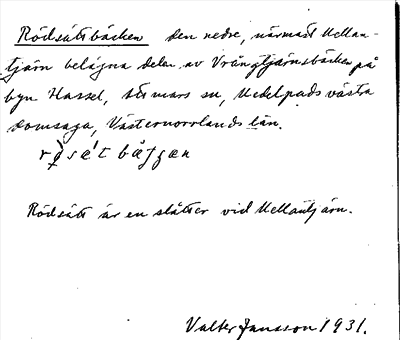 Rödsättsbäcken den nedre, närmast Mellan-
tjärn belägna delen av Vrångtjärnsbäcken på
byn Hassel, Stömars sn, Medelpads västra
domsaga, Västernorrlands län.
rø̀sét båʃʃæn
Rödsätt är en slåtter vid Mellantjärn.
Valter Jansson 1931.